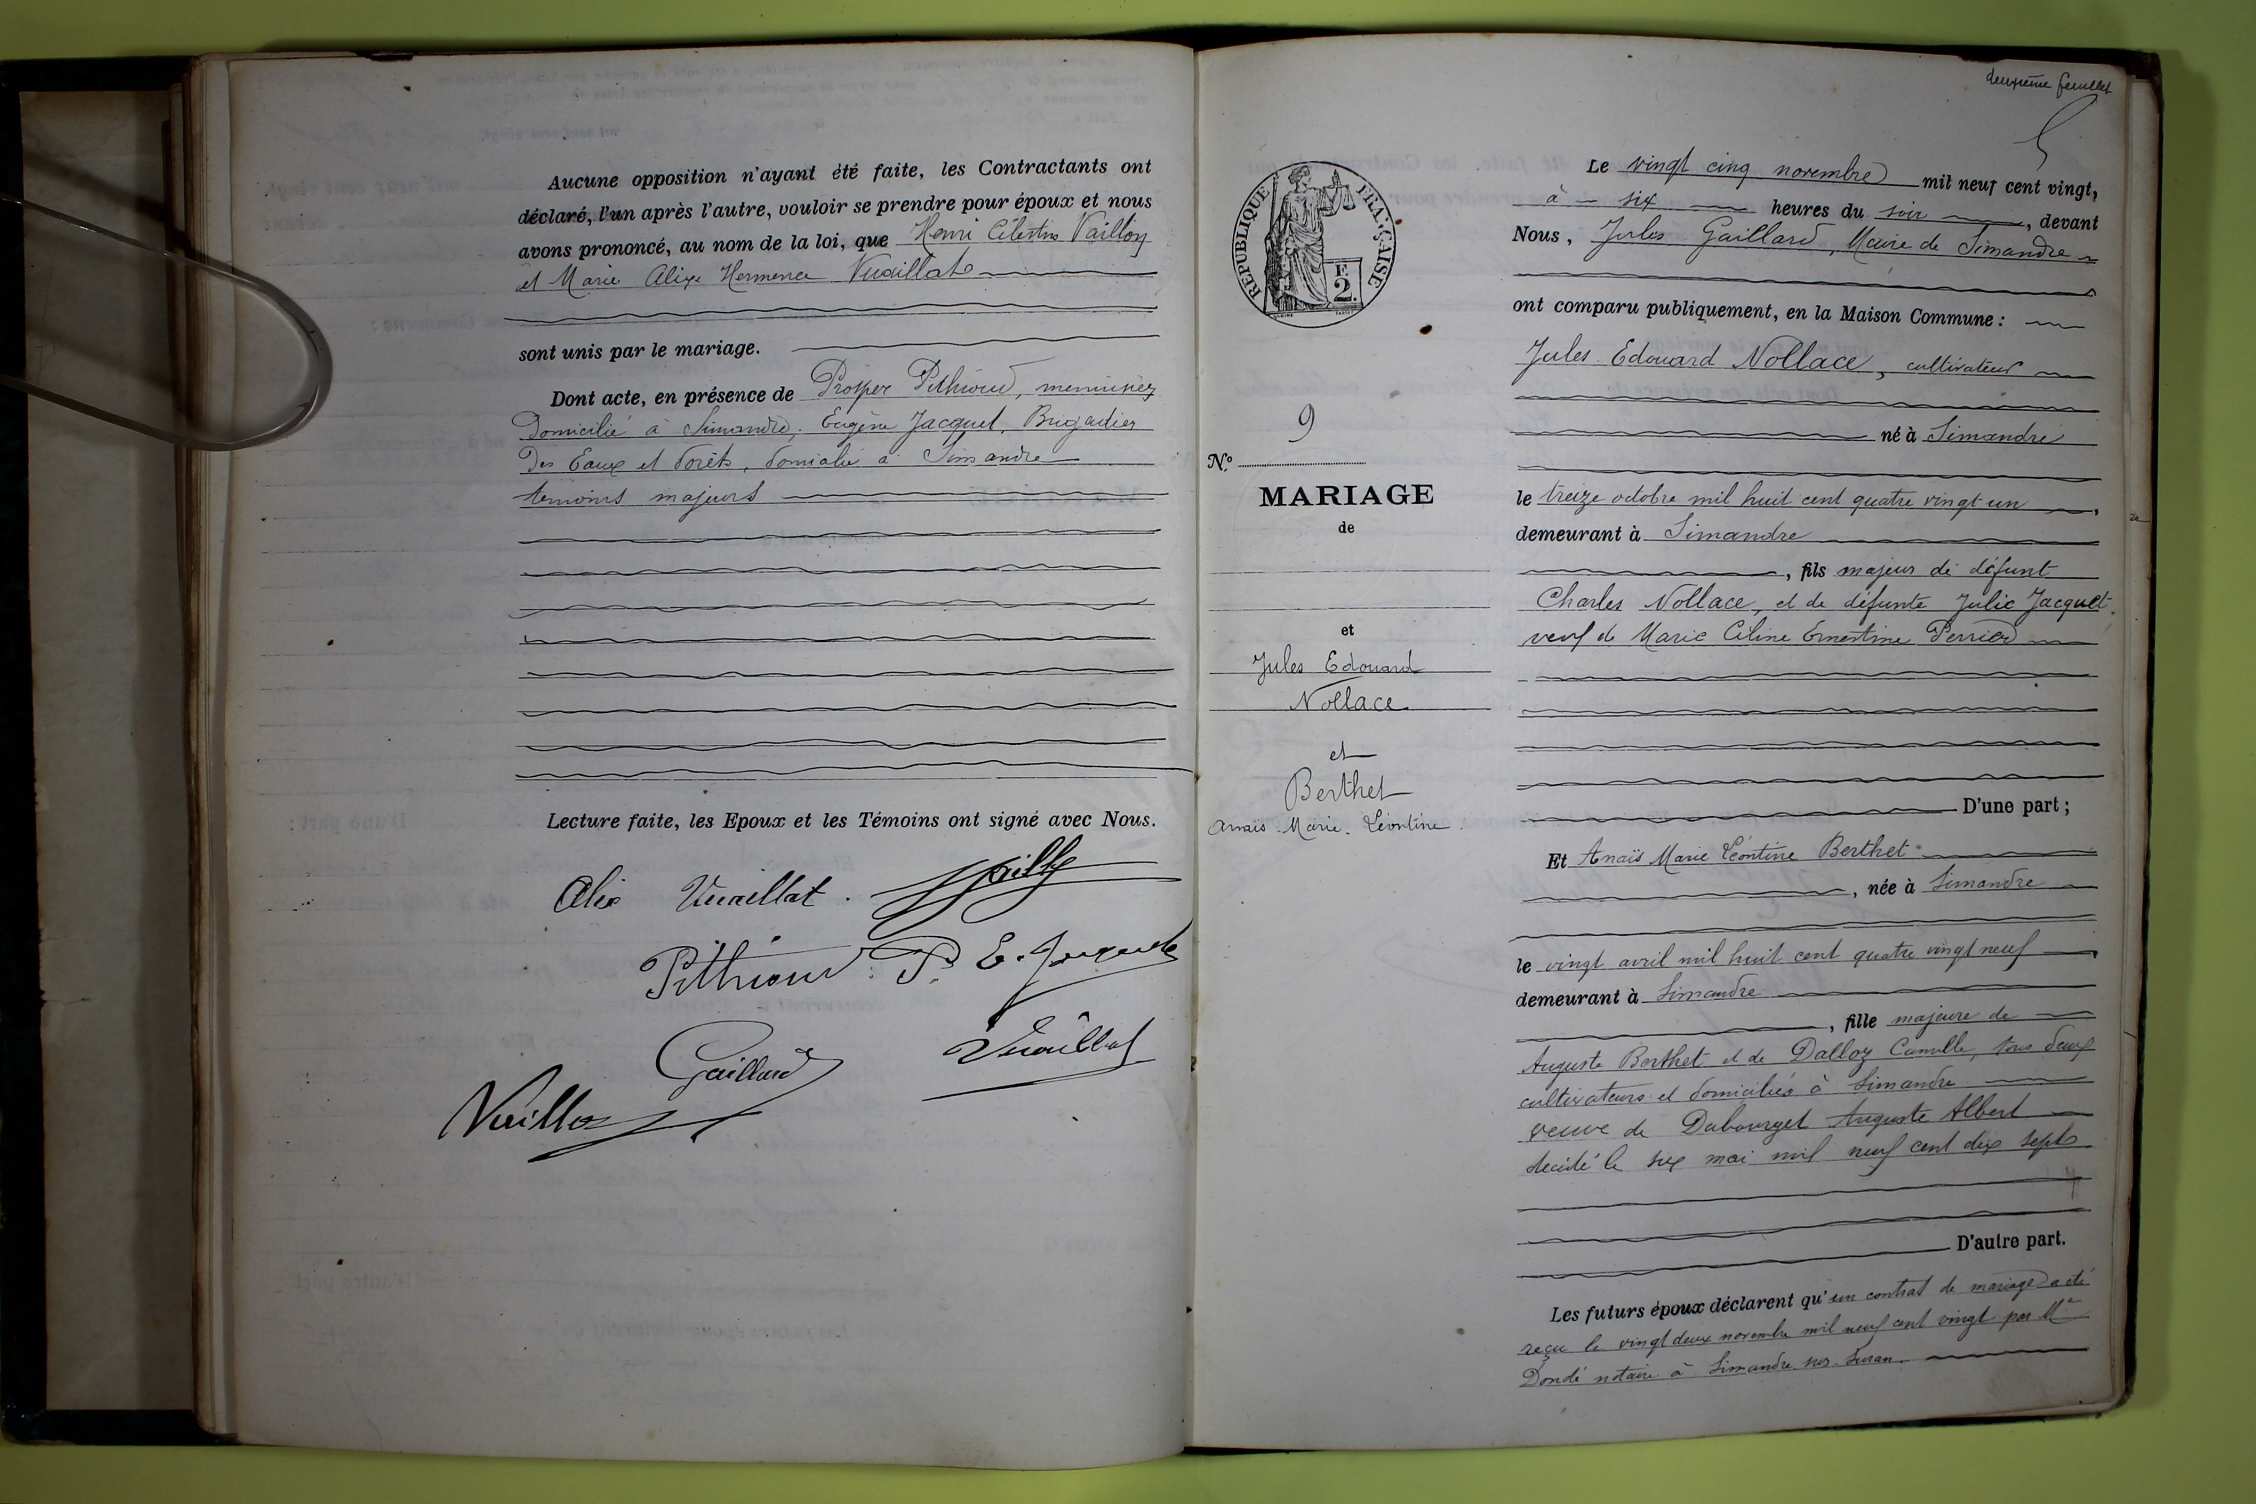 Aucune opposition n'ayant été faite, les Contractants ont
déclaré, l'un après l'autre, vouloir se prendre pour époux et nous
avons prononcé, au nom de la loi, que Henri Célestin Vaillon
et Marie Alix Hermence Vuaillat
sont unis par le mariage.
Dont acte, en présence de Prosper Pithioud, menuisier
domicilié à Simandre, Eugène Jacquet, Brigadier
des Eaux et forêts, domicilié à Simandre
témoins majeurs
Lecture faite, les Epoux et les Témoins ont signé avec Nous.
Alix Vuaillat.
Pithioud P. E. Jacquet
Gaillard Vuaillat
deuxième feuillet
5
REPUBLIQUE FRANÇAISE
F.
2.
N.º 9
MARIAGE
de
et
Jules Edouard
Nollace
et
Berthet
Anaïs Marie Léontine.
Le vingt cinq novembre mil neuf cent vingt,
à six heures du soir, devant
Nous, Jules Gaillard, Maire de Simandre
ont comparu publiquement, en la Maison Commune :
Jules Edouard Nollace, cultivateur
né à Simandre
le treize octobre mil huit cent quatre vingt un,
demeurant à Simandre
, fils majeur de défunt
Charles Nollace, et de défunte Julie Jacquet.
veuf de Marie Céline Ernestine Perrier
D'une part ;
Et Anaïs Marie Léontine Berthet
, née à Simandre
le vingt avril mil huit cent quatre vingt neuf,
demeurant à Simandre
, fille majeure de
Auguste Berthet et de Dalloz Camille, tous deux
cultivateurs et domiciliés à Simandre
veuve de Dubourget Auguste Albert
décédé le six mai mil neuf cent dix sept
D'autre part.
Les futurs époux déclarent qu'un contrat de mariage a été
reçu le vingt deux novembre mil neuf cent vingt par Me
Dondé notaire à Simandre sur Suran.